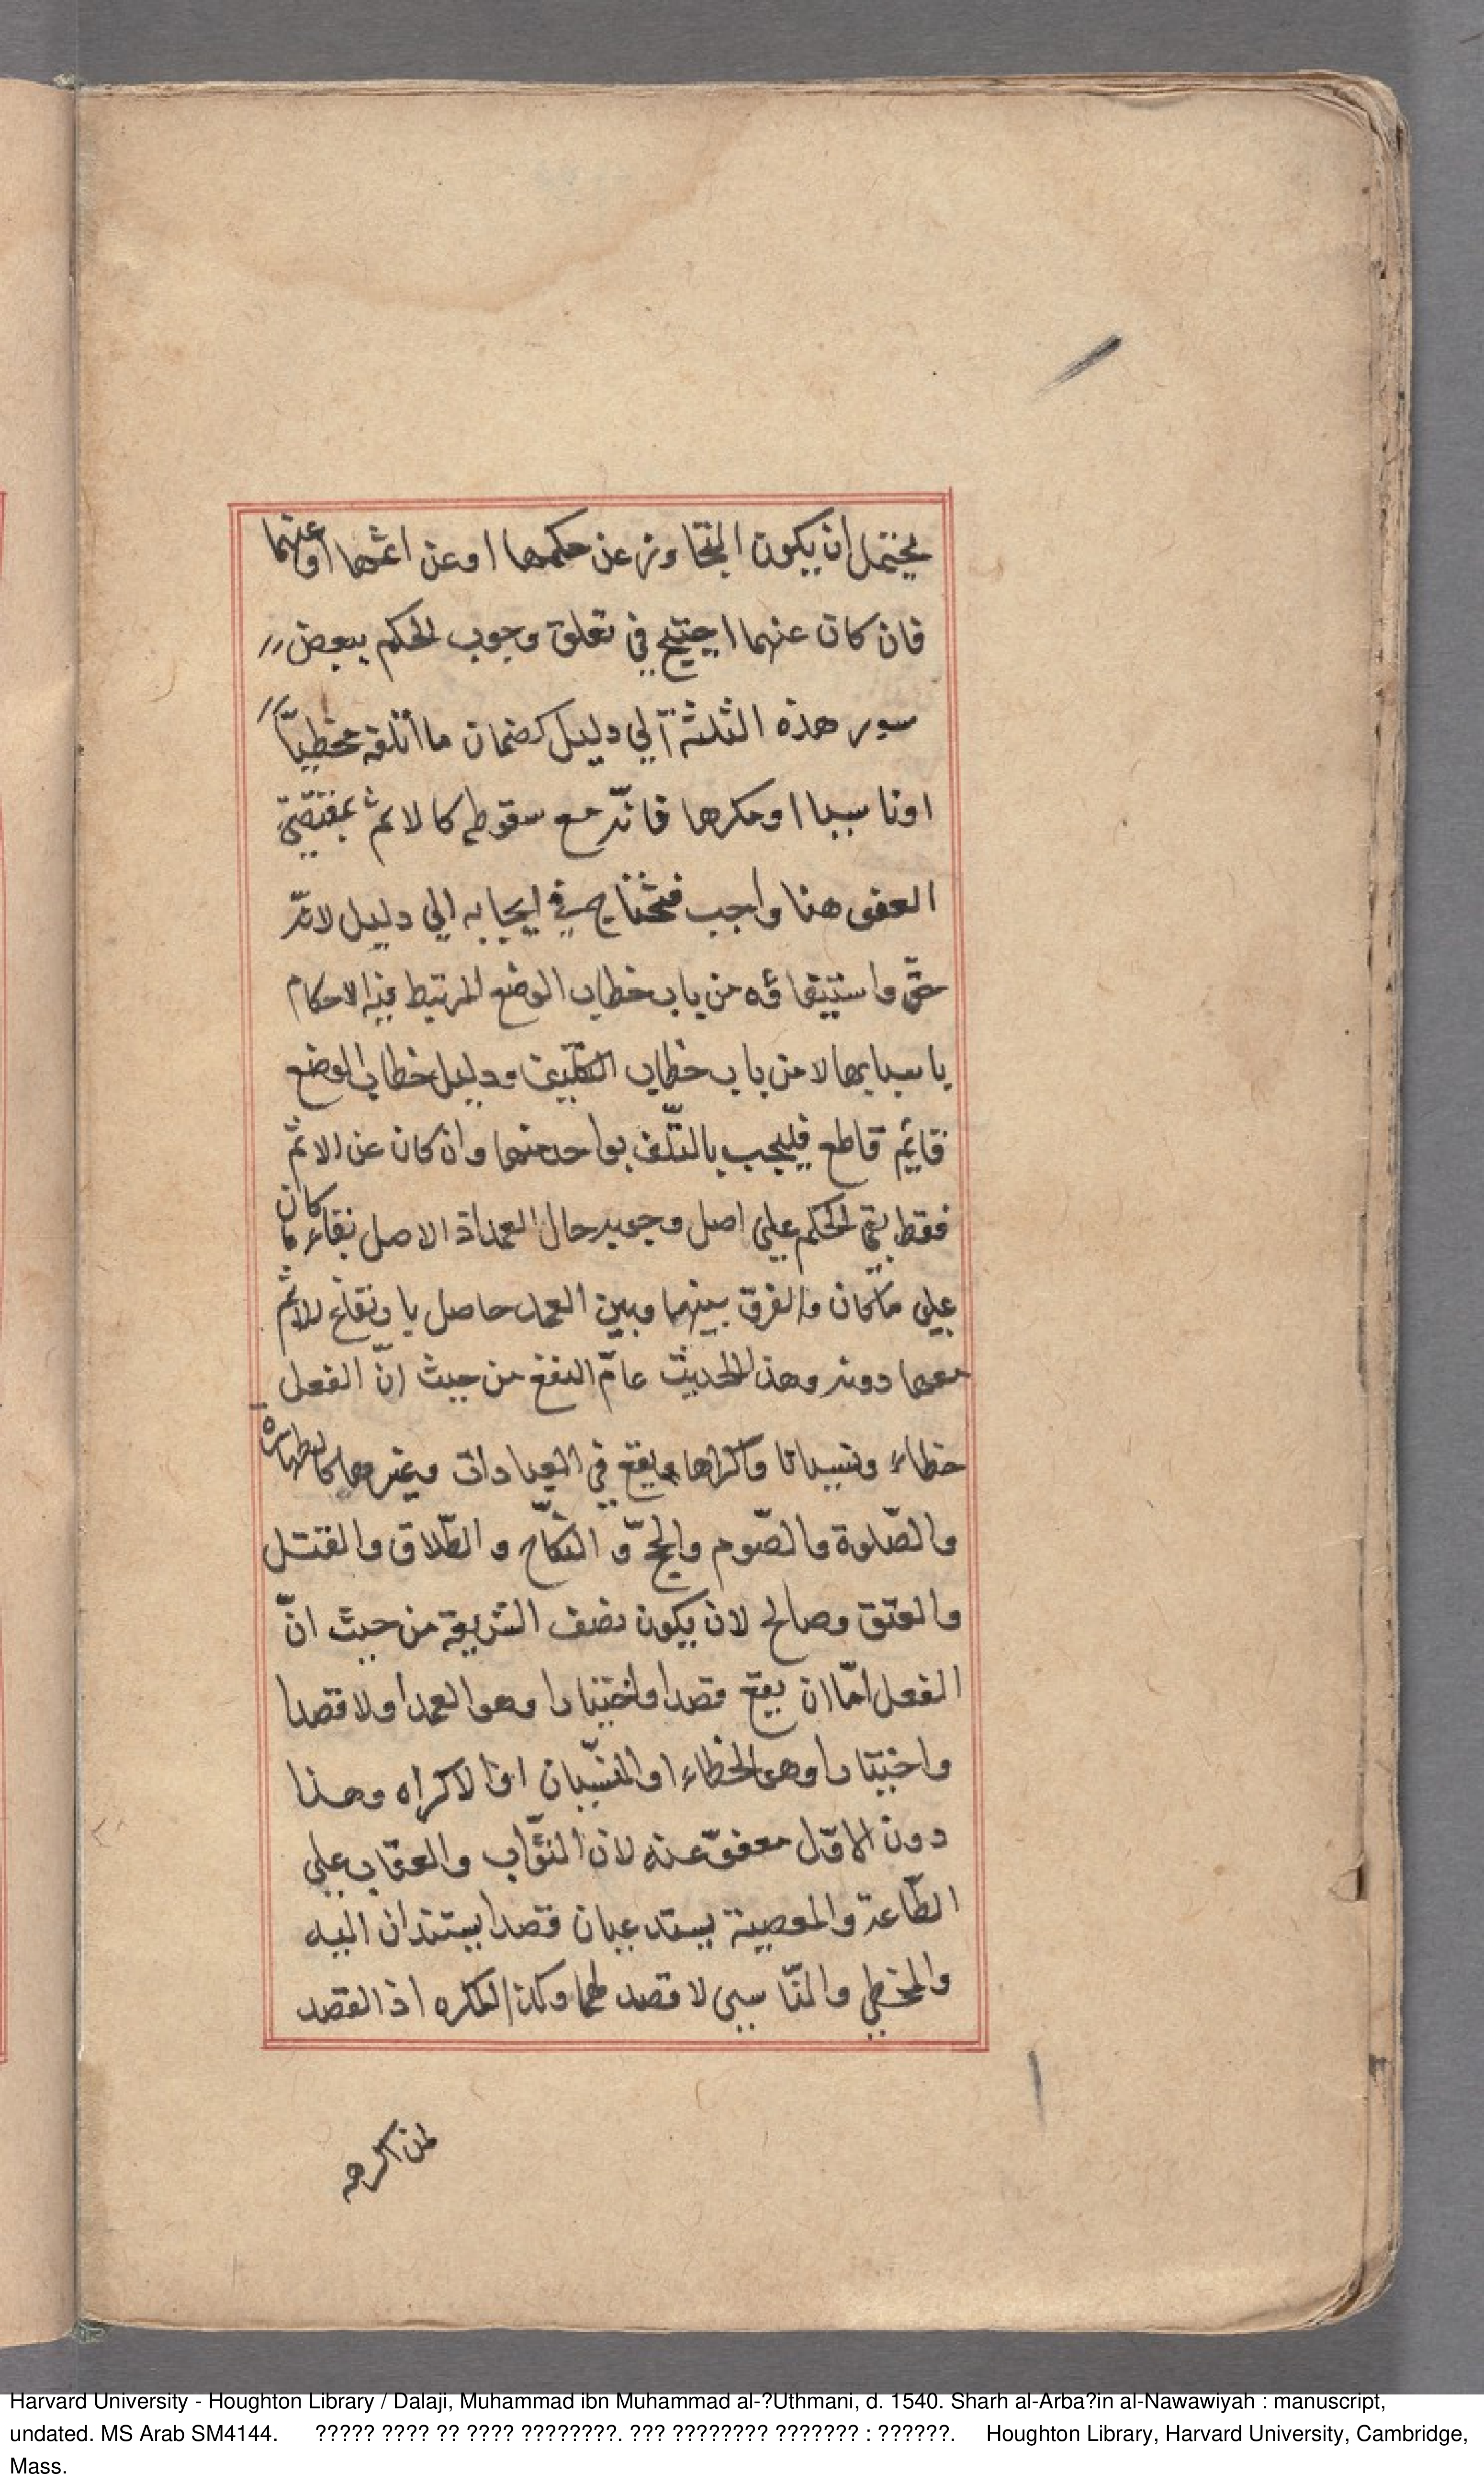 يحتمل ان يكون التجاوز عن حكمها او عن اثمها او عنهما
فان كان عنهما احتيج في تعلق وجوب الحكم ببعض
سور هذه الثلثة الي دليل كضمان ما أتلفه مخطيّاً
او ناسيا او مكرها فانّه مع سقوطه كالاثم بمقتضي
العفو هنا واجب فتحتاج في ايجابه الي دليل لانّه
حقّ واستيفاؤه من باب خطاب الوضع المرتبط فيه الاحكام
باسبابها لا من باب خطاب التكليف ودليل خطاب الوضع
قايم قاطع فليجب بالتّلف بواحد منها وان كان عن الاثم
فقط بقي الحكم علي اصل وجوبه حال العمد اذ الاصل بقاء ما كان
علي ما كان والفرق بينهما وبين العمد حاصل با وتفاع للاثم
معها دونه وهذا الحديث عامّ النفع من حيث انّ الفعل
خطاء ونسيانا واكراها يقع في العبادات وغيرها كالطهارة
والصّلوة والصّوم والحجّ و النّكاح و الطّلاق والقتل
والعتق وصالح لان يكون نصف الشريعة من حيث انّ
الفعل امّا ان يقع قصدا واختيارا وهو العمد او لا قصدا
واختيارا وهو الخطاء او النّسيان او الاكراه وهذا
دون الاوّل معفوّ عنه لان الثّواب والعقاب علي
الطّاعة والمعصية يستدعيان قصدا يستندان اليه
والمخطي والنّاسي لا قصد لهما وكذا المكره اذ القصد
لمن اكرهه
Harvard University - Houghton Library / Dalaji, Muhammad ibn Muhammad al-?Uthmani, d. 1540. Sharh al-Arba?in al-Nawawiyah : manuscript,
undated. MS Arab SM4144. ????? ???? ?? ???? ????????. ??? ???????? ??????? : ??????. Houghton Library, Harvard University, Cambridge,
Mass.